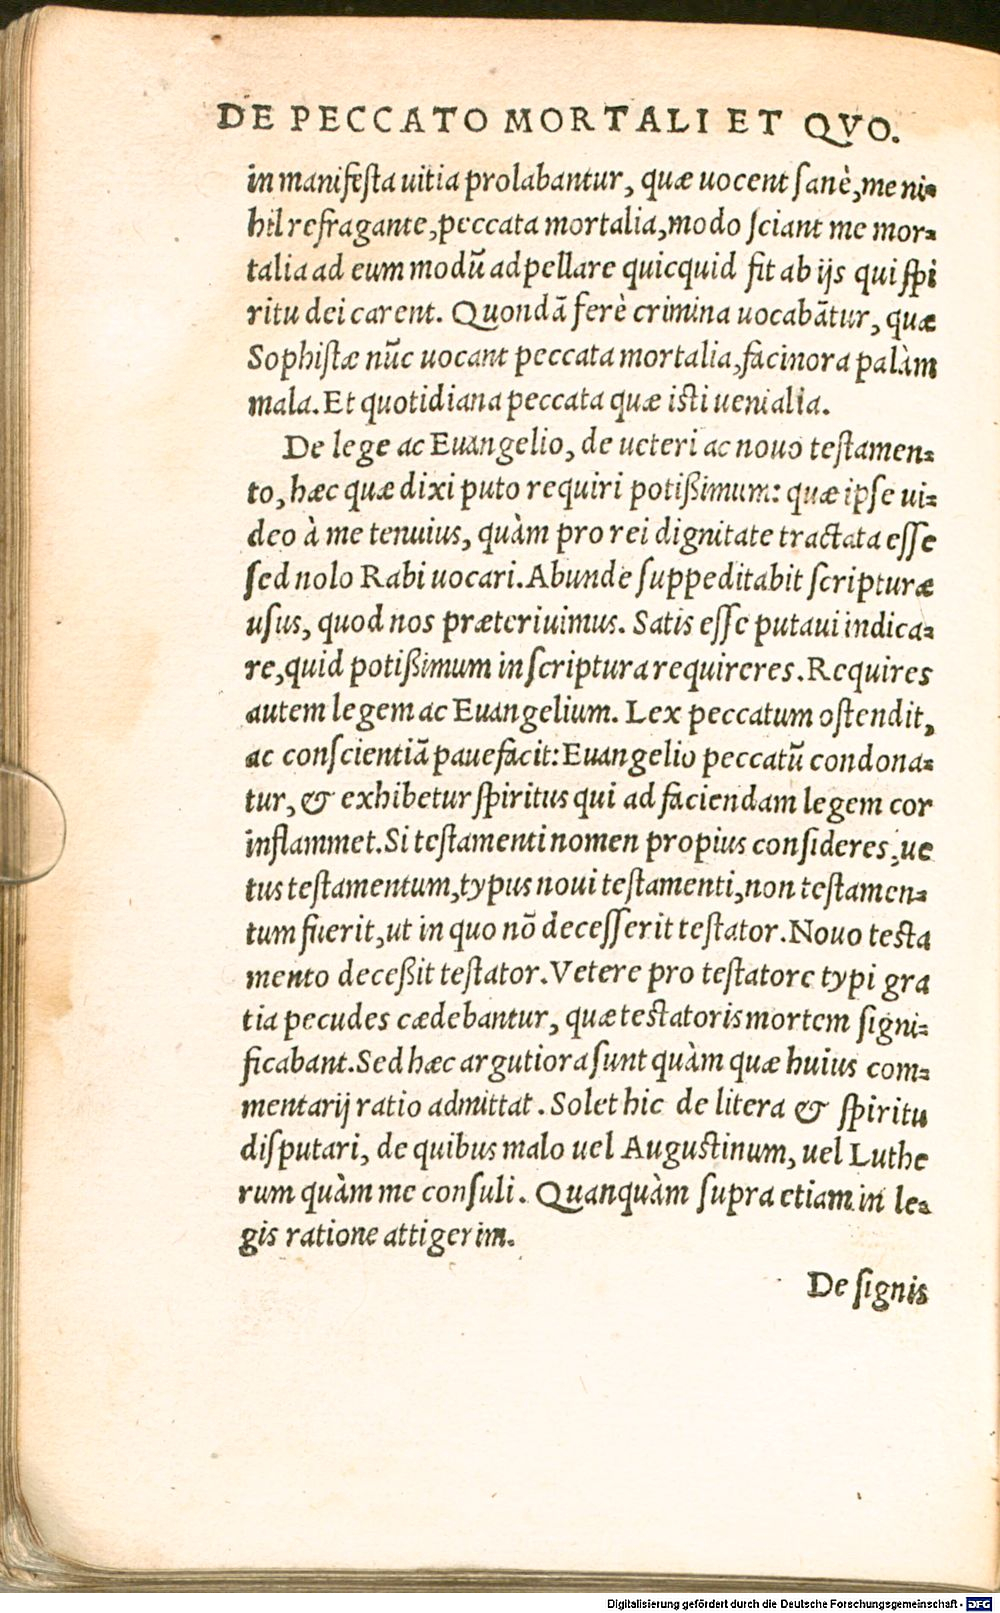 DE PECCATO MORTALI ET QVO.
in manifeſta uitia prolabantur, quæ uocent ſanè, me ni-
hil refragante, peccata mortalia, modo ſciant me mor-
talia ad eum modũ adpellare quicquid fit ab ijs qui ſpi
ritu dei carent. Quondã ferè crimina uocabãtur, quæ
Sophiſtæ nũc uocant peccata mortalia, facinora palàm
mala. Et quotidiana peccata quæ iſti uenialia.
De lege ac Euangelio, de ueteri ac nouo teſtamen-
to, hæc quæ dixi puto requiri potißimum: quæ ipſe ui-
deo à me tenuius, quàm pro rei dignitate tractata eſſe
ſed nolo Rabi uocari. Abunde ſuppeditabit ſcripturæ
uſus, quod nos præteriuimus. Satis eſſe putaui indica-
re, quid potißimum in ſcriptura requireres. Requires
autem legem ac Euangelium. Lex peccatum oſtendit,
ac conſcientiã pauefacit: Euangelio peccatũ condona-
tur, & exhibetur ſpiritus qui ad faciendam legem cor
inflammet. Si teſtamenti nomen propius conſideres, ue
tus teſtamentum, typus noui teſtamenti, non teſtamen-
tum fuerit, ut in quo nõ deceſſerit teſtator. Nouo teſta
mento deceßit teſtator. Vetere pro teſtatore typi gra
tia pecudes cædebantur, quæ teſtatoris mortem ſigni-
ficabant. Sed hæc argutiora ſunt quàm quæ huius com-
mentarij ratio admittat. Solet hic de litera & ſpiritu
diſputari, de quibus malo uel Auguſtinum, uel Luthe
rum quàm me conſuli. Quanquàm ſupra etiam in le-
gis ratione attigerim.
De ſignis
Digitalisierung gefördert durch die Deutsche Forschungsgemeinschaft - DFG